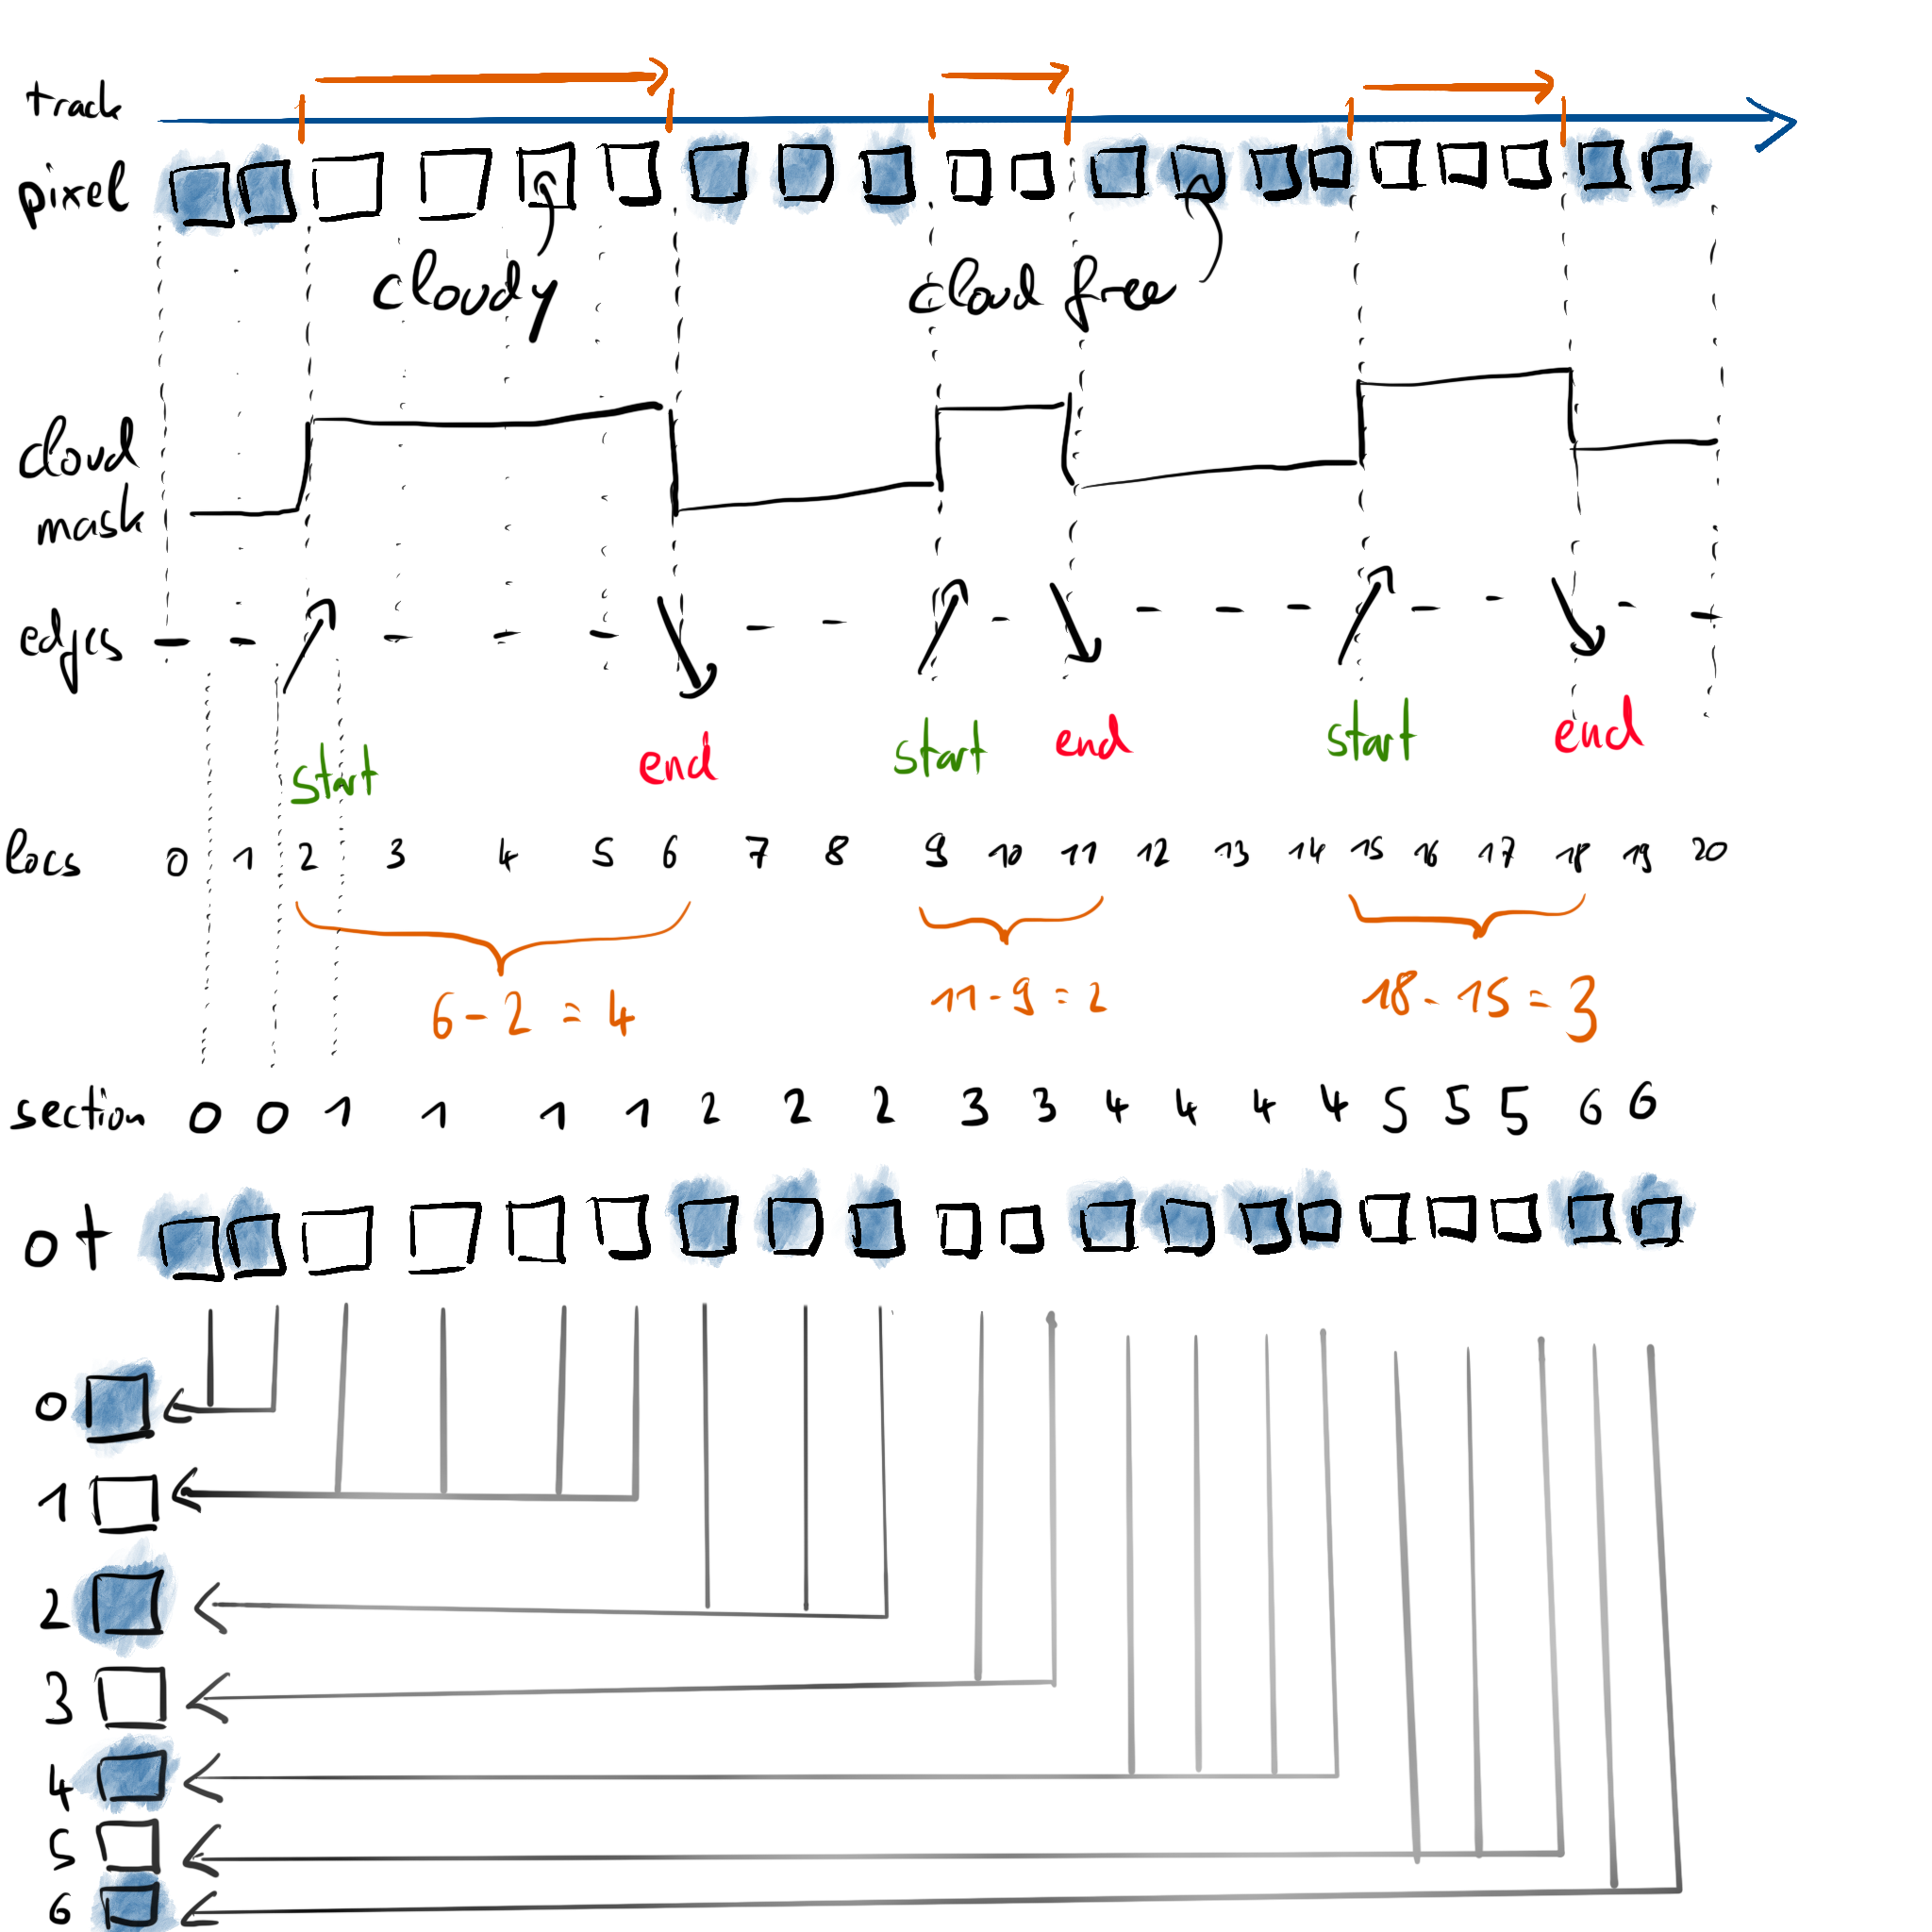 track
pixel
cloudy
cloud free
cloud
mask
edges
start end start end start end
locs 0 1 2 3 4 5 6 7 8 9 10 11 12 13 14 15 16 17 18 19 20
6 - 2 = 4 11 - 9 = 2 18 - 15 = 3
section 0 0 1 1 1 1 2 2 2 3 3 4 4 4 4 5 5 5 6 6
ot
0
1
2
3
4
5
6